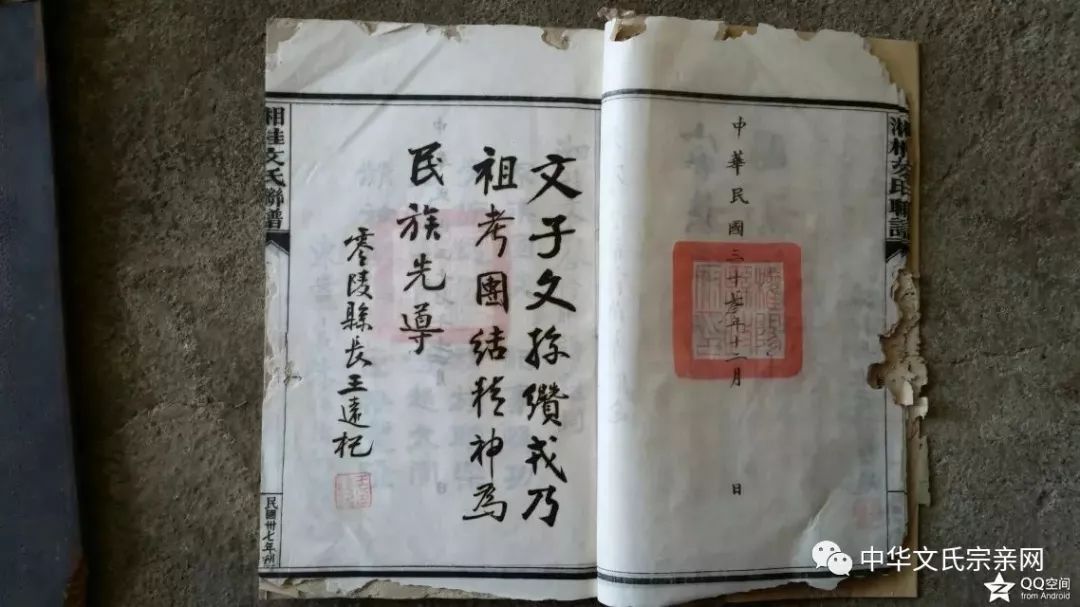 湘桂文氏聯譜
中華民國三十年十二月 日
文子文孫纘戎乃
祖考團結精神為
民族先導
零陵縣長王遠杞
湘桂文氏聯譜
民國卅七年
中华文氏宗亲网
QQ空间
from Android